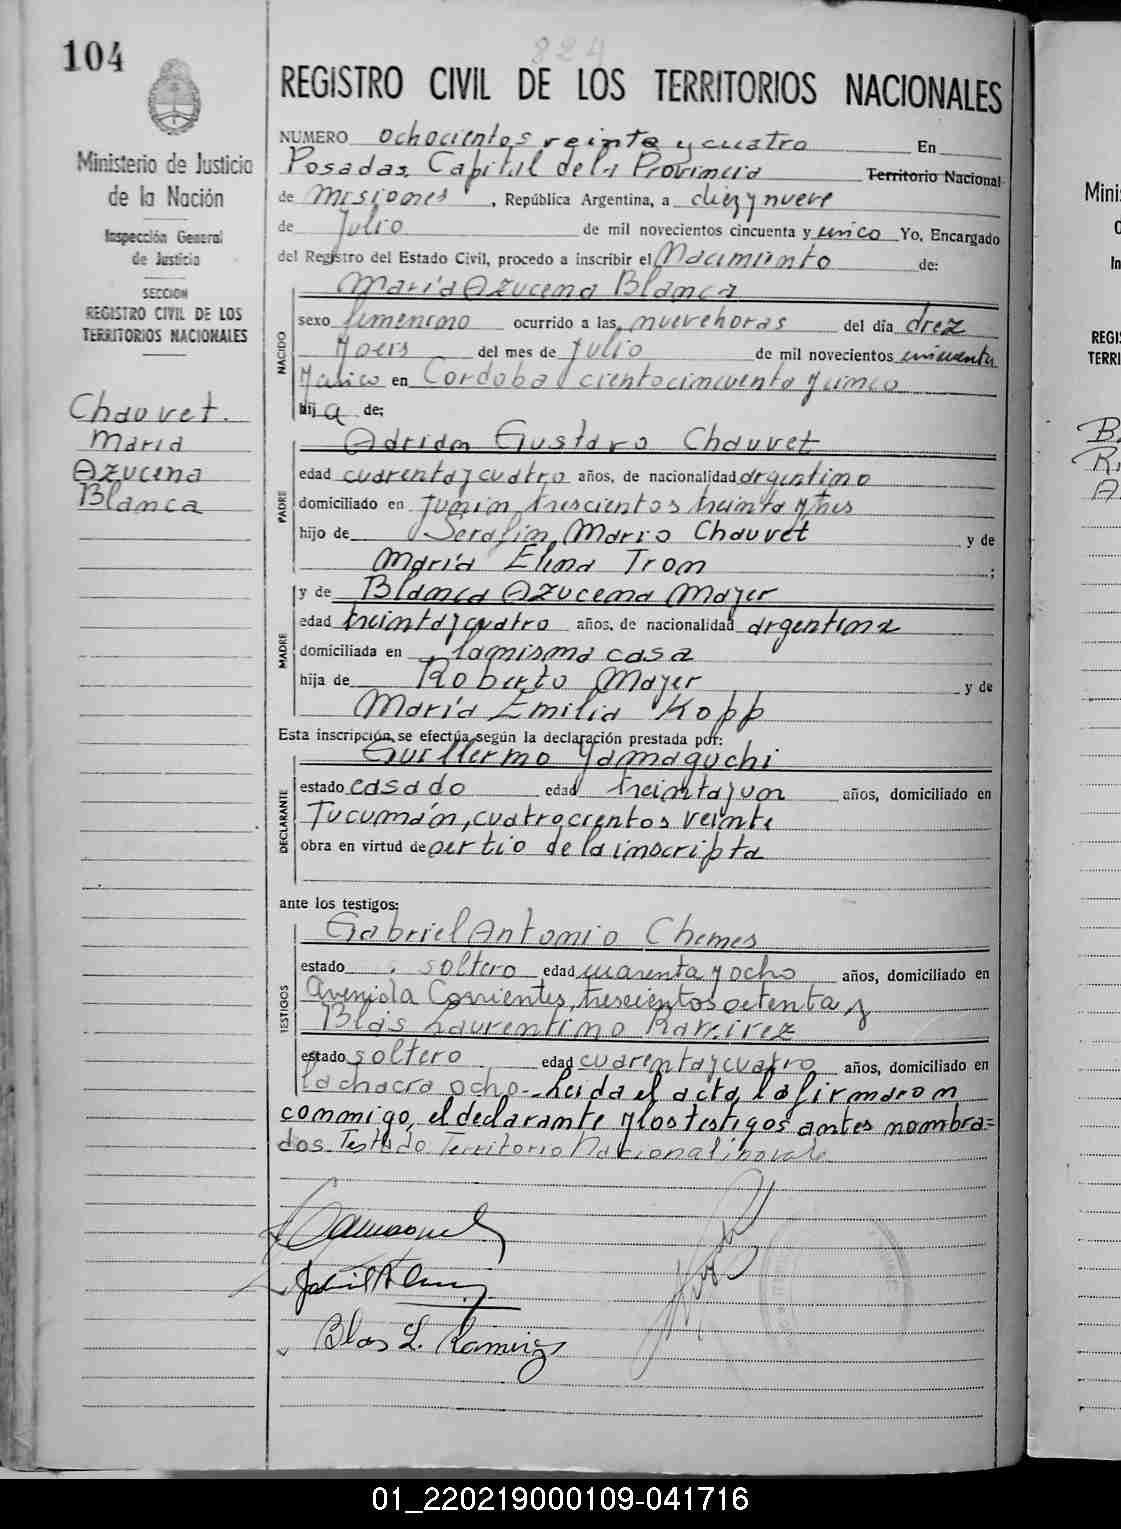 104
824
REGISTRO CIVIL DE LOS TERRITORIOS NACIONALES
Ministerio de Justicia
de la Nación
Inspección General
de Justicia
SECCION
REGISTRO CIVIL DE LOS
TERRITORIOS NACIONALES
Chauvet.
María
Azucena
Blanca
NUMERO ochocientos veinte y cuatro En
Posadas, Capital de la Provincia Territorio Nacional
de Misiones, República Argentina, a diez y nueve
de Julio de mil novecientos cincuenta y cinco Yo, Encargado
del Registro del Estado Civil, procedo a inscribir el Nacimiento de:
María Azucena Blanca
NACIDO
sexo femenino ocurrido a las nueve horas del día diez
y seis del mes de Julio de mil novecientos cincuenta
y cinco en Cordoba ciento cincuenta y cinco
hija de;
Adrian Gustavo Chauvet
PADRE
edad cuarenta y cuatro años, de nacionalidad argentino
domiciliado en Junín, trescientos treinta y tres
hijo de Serafín Mario Chauvet y de
María Elina Tron ;
y de Blanca Azucena Mayer
MADRE
edad treinta y cuatro años, de nacionalidad argentina
domiciliada en la misma casa
hija de Roberto Mayer y de
María Emilia Kopp
Esta inscripción se efectúa según la declaración prestada por:
Guillermo Yamaguchi
DECLARANTE
estado casado edad treinta y un años, domiciliado en
Tucumán, cuatrocientos veinte
obra en virtud de ser tio de la inscripta
ante los testigos:
Gabriel Antonio Chemes
TESTIGOS
estado soltero edad cuarenta y ocho años, domiciliado en
Avenida Corrientes, trescientos ochenta y
Blás Laurentino Ramirez
estado soltero edad cuarenta y cuatro años, domiciliado en
la chacra ocho.- Leida el acta, la firmaron
conmigo, el declarante y los testigos antes nombra=
dos. Testado Territorio Nacional: no vale
Blas L. Ramirez
Minis
REGIS
TERRI
01_220219000109-041716